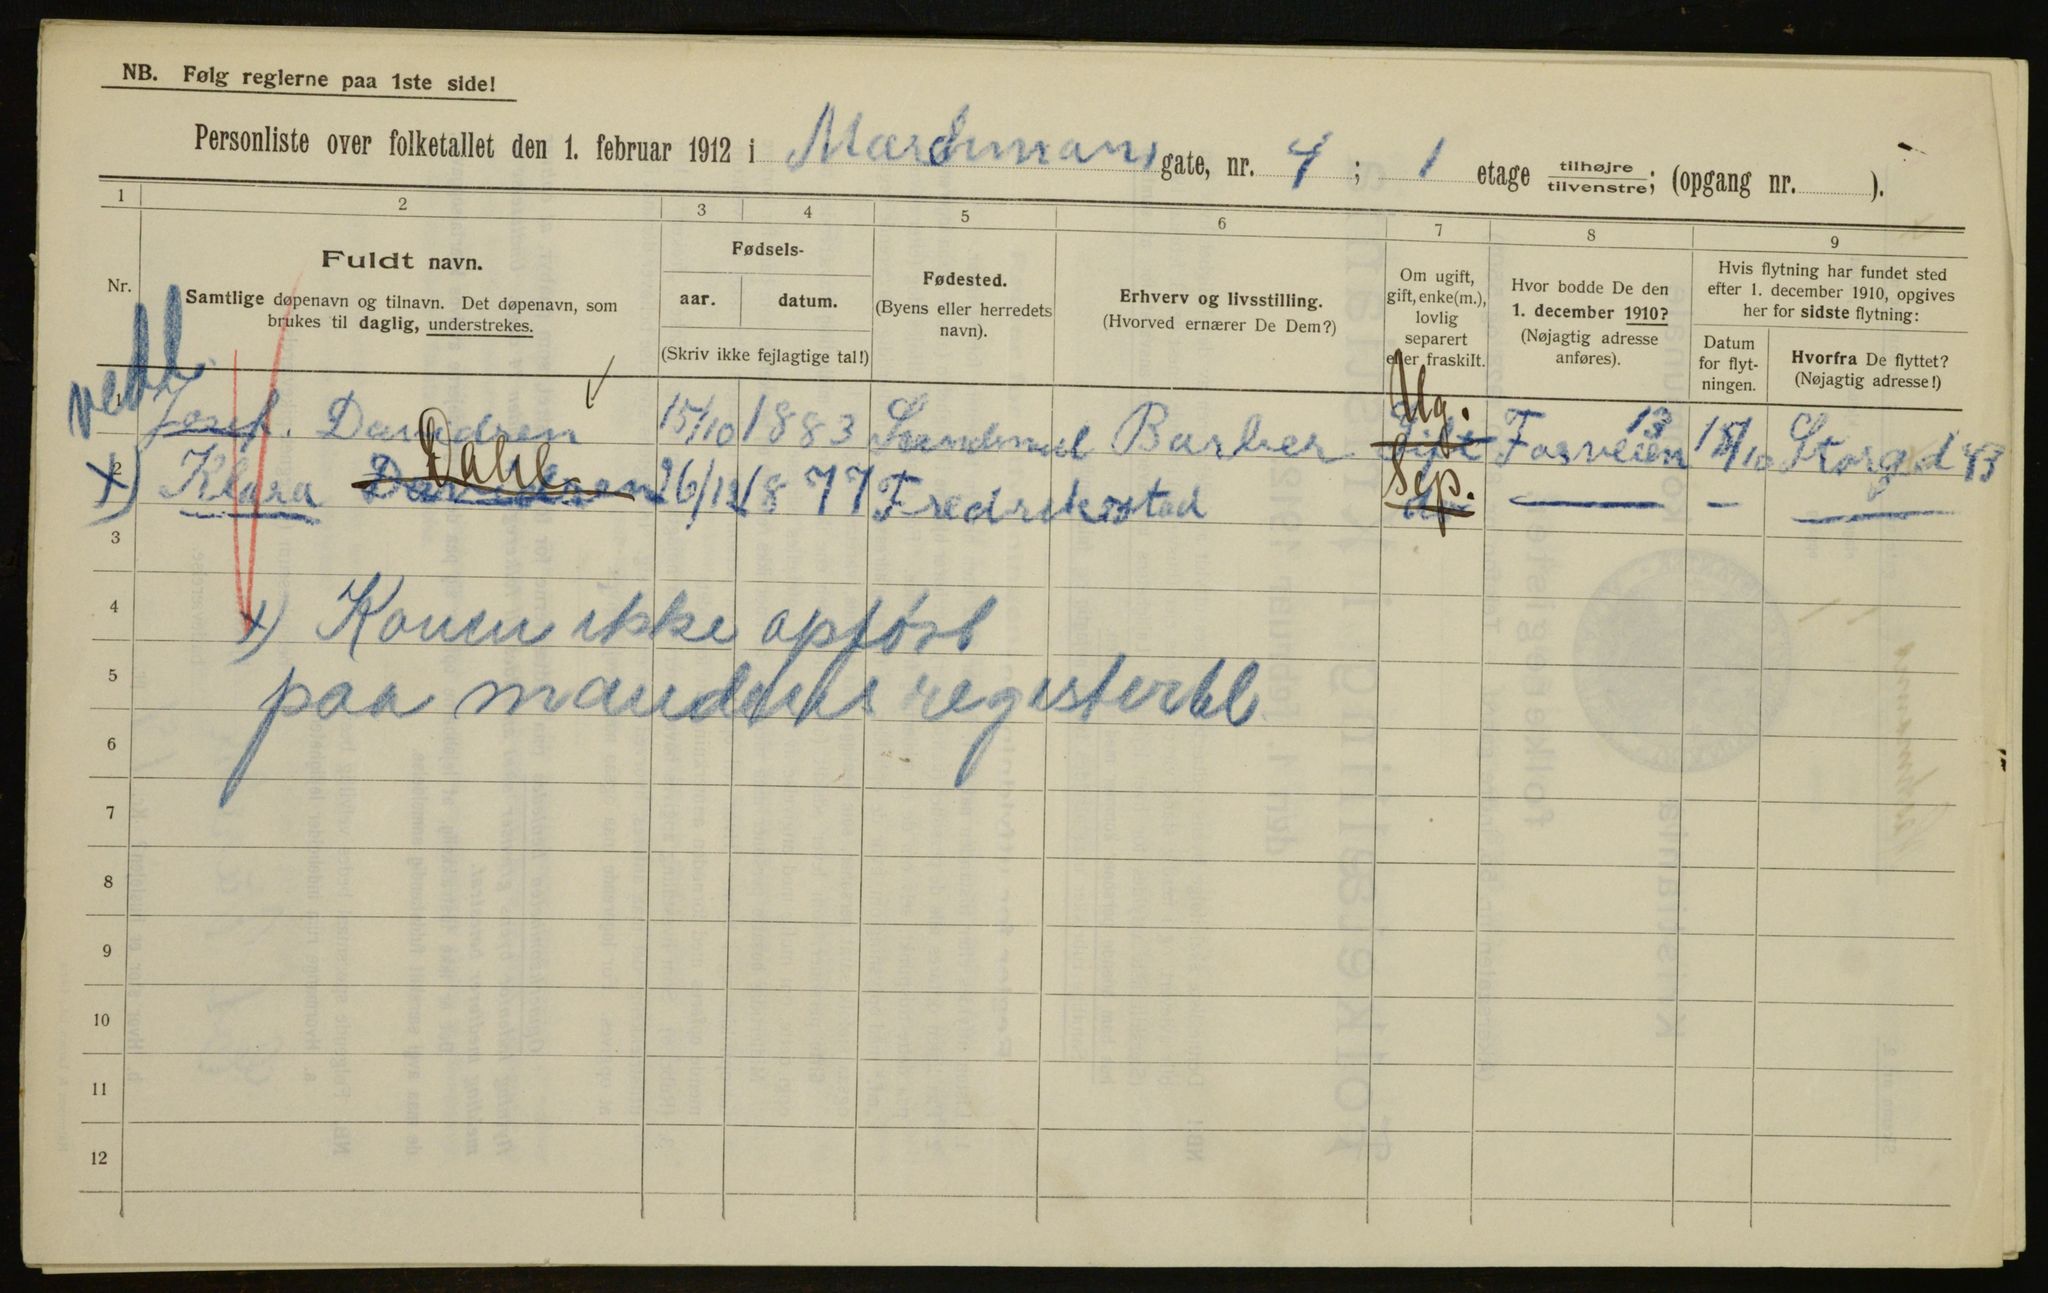 NB. Følg reglerne paa 1ste side!
Personliste over folketallet den 1. februar 1912 i Markmans gate, nr. 4 ; 1 etage tilhøjre/tilvenstre; (opgang nr. ).
1 2 3 4 5 6 7 8 9
Nr.
Fuldt navn.
Samtlige døpenavn og tilnavn. Det døpenavn, som
brukes til daglig, understrekes.
Fødsels-
aar. datum.
(Skriv ikke fejlagtige tal!)
Fødested.
(Byens eller herredets
navn).
Erhverv og livsstilling.
(Hvorved ernærer De Dem?)
Om ugift,
gift, enke(m.),
lovlig
separert
eller fraskilt.
Hvor bodde De den
1. december 1910?
(Nøjagtig adresse
anføres).
Hvis flytning har fundet sted
efter 1. december 1910, opgives
her for sidste flytning:
Datum
for flyt-
ningen.
Hvorfra De flyttet?
(Nøjagtig adresse!)
vedl.
1 Josef. Davidsen 15/10 1883 Barber Gift Ug. Fosveien 13 15/10 Storgd 43
2 x) Klara Davidsen Dahl 26/12 1877 Fredrikstad do Sep. — — —
3
4 x) Konen ikke opført
5 paa mandens registerbl
6
7
8
9
10
11
12